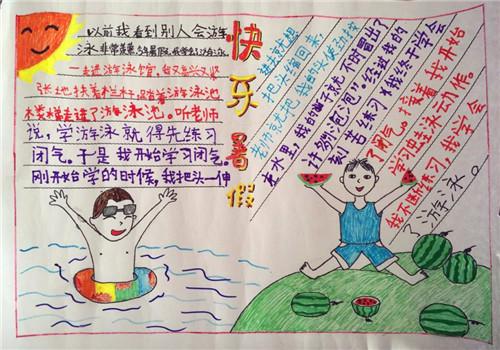 快乐暑假
以前我看到别人会游
泳非常羡慕,今年暑假,我学会了游泳
一走进游泳馆,我又高兴又紧
张地扶着栏杆,踩着游泳池
楼梯走进了游泳池。听老师
说,学游泳就得先练习
闭气。于是我开始学习闭气。
刚开始学的时候,我把头一伸
进去就想
把头缩回来
老师就把我的头
在水里,我的脑子就不时冒出了
许多小“泡泡”经过我的
刻苦练习,我终于学会
了闭气。接着,我开始
学习蛙泳动作。
我不断练习,我学会
了游泳。